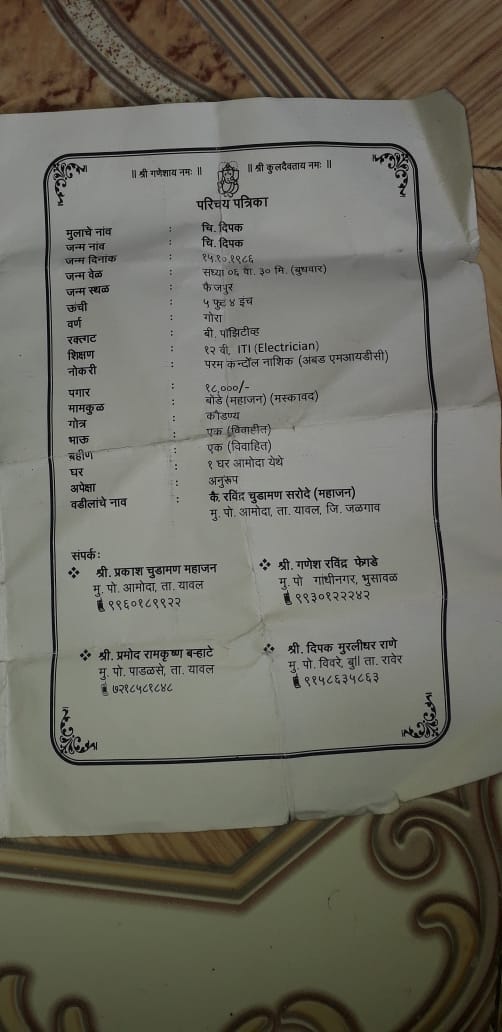 ॥ श्री गणेशाय नमः ॥ ॥ श्री कुलदैवताय नमः ॥
परिचय पत्रिका
मुलाचे नांव : चि. दिपक
जन्म नांव : चि. दिपक
जन्म दिनांक : १५.१०.१९८६
जन्म वेळ : संध्या ०६ वा. ३० मि. (बुधवार)
जन्म स्थळ : फैजपूर
ऊंची : ५ फुट ४ इंच
वर्ण : गोरा
रक्तगट : बी. पॉझिटीव्ह
शिक्षण : १२ वी, ITI (Electrician)
नोकरी : परम कन्ट्रोल नाशिक (अंबड एमआयडीसी)
पगार : १८,०००/-
मामकुळ : बोंडे (महाजन) (मस्कावद)
गोत्र : कौडण्य
भाऊ : एक (विवाहीत)
बहीण : एक (विवाहित)
घर : १ घर आमोदा येथे
अपेक्षा : अनुरूप
वडीलांचे नाव : कै. रविंद्र चुडामण सरोदे (महाजन)
मु. पो. आमोदा, ता. यावल, जि. जळगाव
संपर्क:
❖ श्री. प्रकाश चुडामण महाजन
मु. पो. आमोदा, ता. यावल
९९६०१८९९२२
❖ श्री. गणेश रविंद्र फेगडे
मु. पो गांधीनगर, भुसावळ
९९३०१२२२४२
❖ श्री. प्रमोद रामकृष्ण बऱ्हाटे
मु. पो. पाडळसे, ता. यावल
७२१८५८१८४८
❖ श्री. दिपक मुरलीधर राणे
मु. पो. विवरे, बु॥ ता. रावेर
९१५८६३५८६३